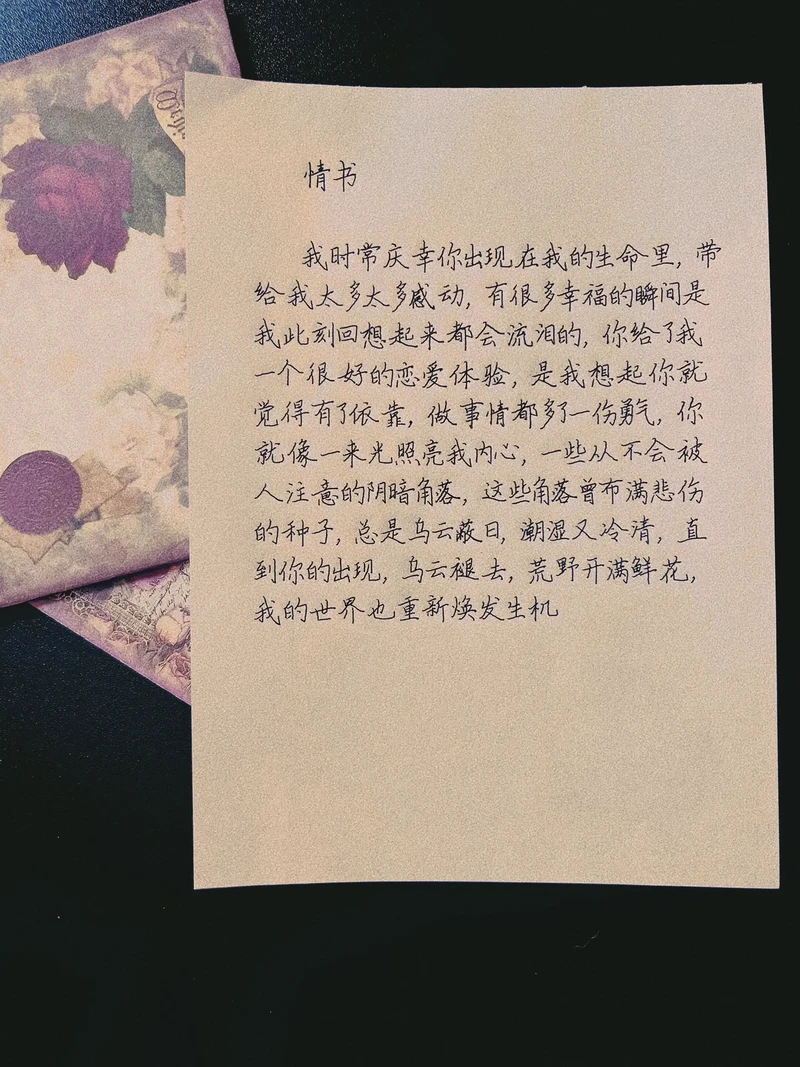 情书
我时常庆幸你出现在我的生命里，带
给我太多太多感动，有很多幸福的瞬间是
我此刻回想起来都会流泪的，你给了我
一个很好的恋爱体验，是我想起你就
觉得有了依靠，做事情都多了一份勇气，你
就像一束光照亮我内心，一些从不会被
人注意的阴暗角落，这些角落曾布满悲伤
的种子，总是乌云蔽日，潮湿又冷清，直
到你的出现，乌云褪去，荒野开满鲜花，
我的世界也重新焕发生机